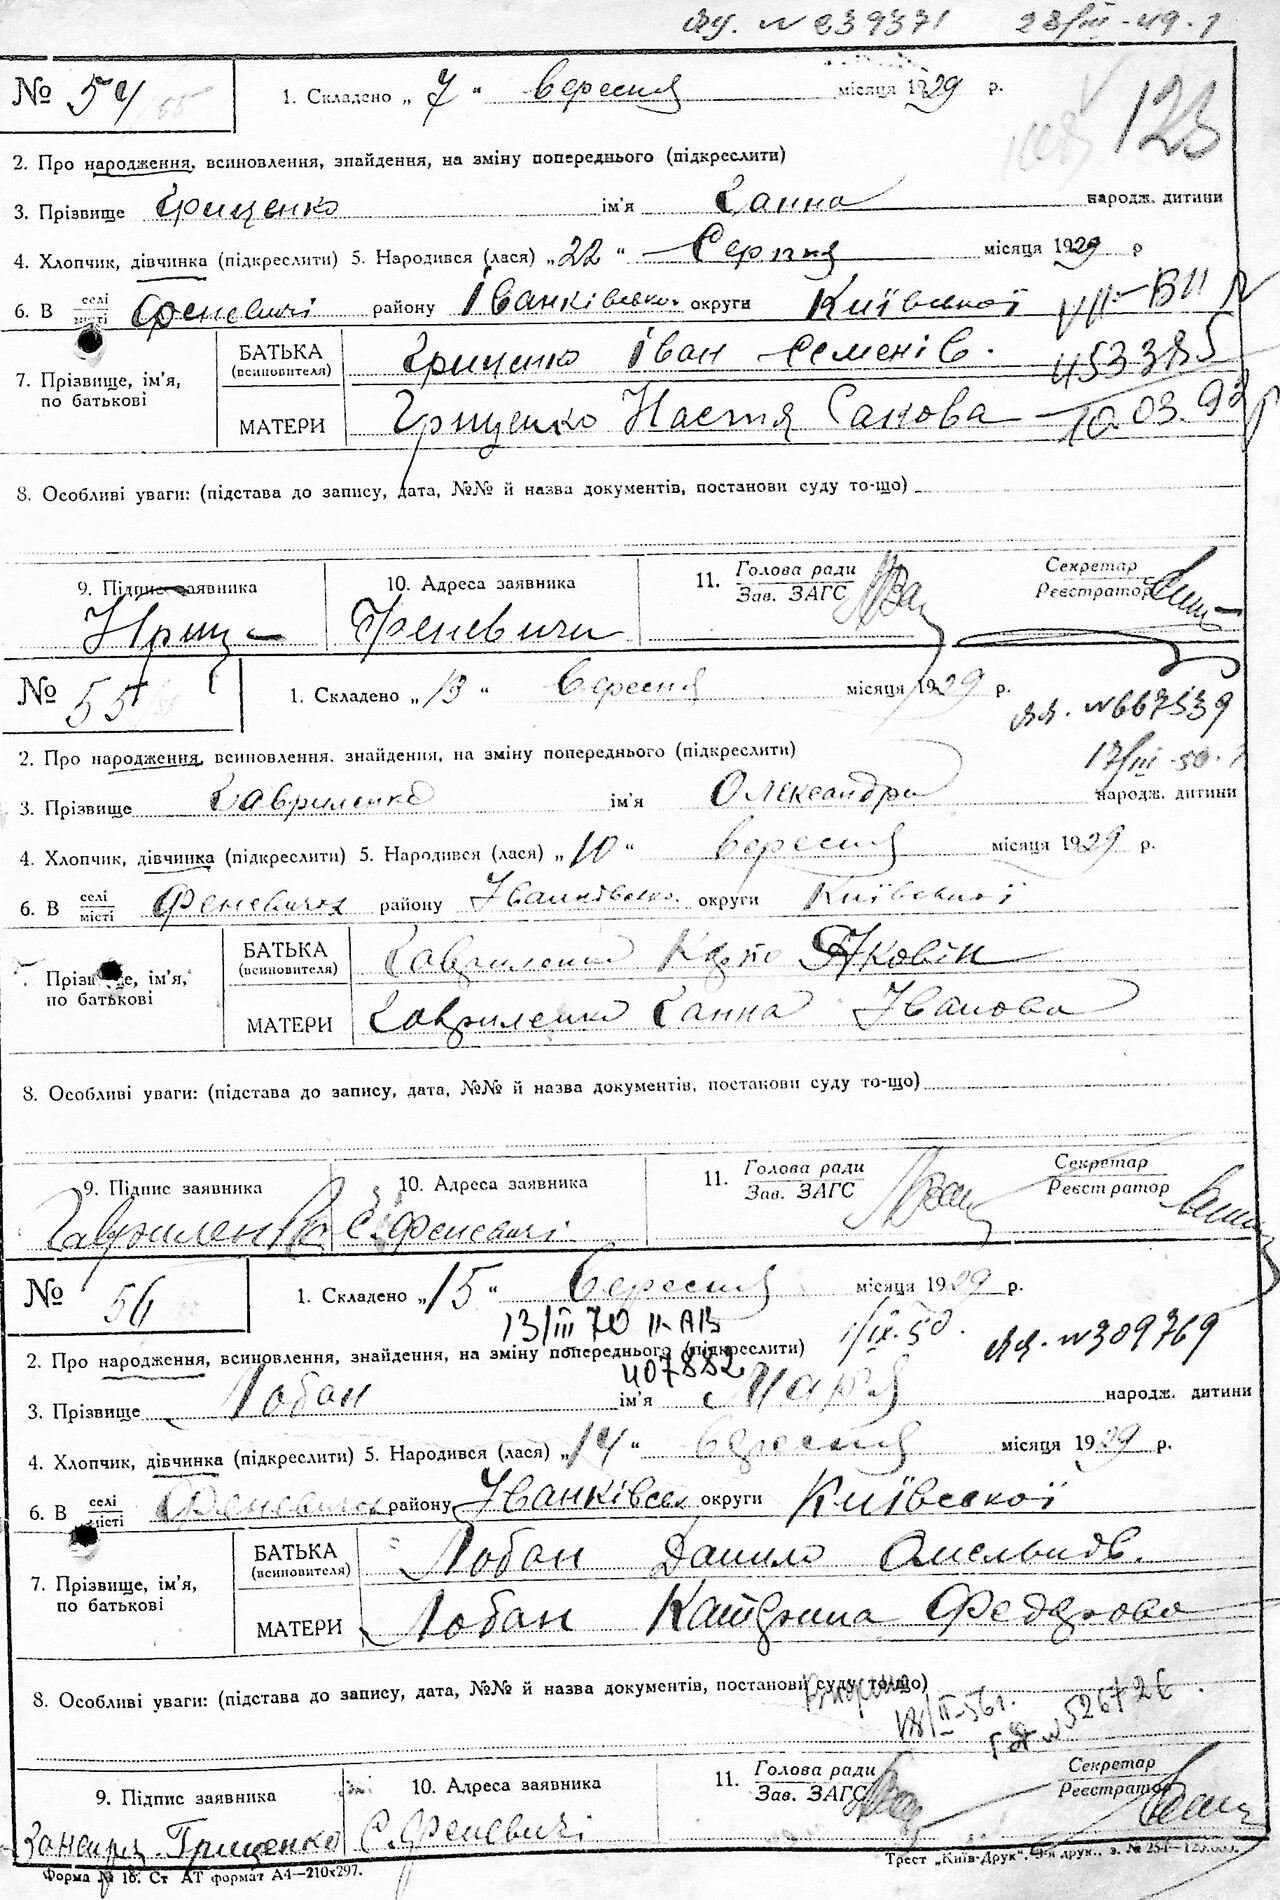 № 239371 23/III-49.
№ 54
1. Складено „7“ вересня місяця 1929 р.
123
2. Про народження, всиновлення, знайдення, на зміну попереднього (підкреслити)
3. Прізвище Грищенко ім'я Ганна народж. дитини
4. Хлопчик, дівчинка (підкреслити) 5. Народився (лася) „22“ Серпня місяця 1929 р
6. В селі місті Феневичі району Іванківськ. округи Київської
VII-ВИ
7. Прізвище, ім'я, по батькові
БАТЬКА (всиновителя) Грищенко Іван Семенів.
453385
МАТЕРИ Грищенко Настя Сакова
10.03.93
8. Особливі уваги: (підстава до запису, дата, №№ й назва документів, постанови суду то-що)
9. Підпис заявника 10. Адреса заявника 11. Голова ради Зав. ЗАГС Секретар Реєстратор
Феневичи
№ 55
1. Складено „13“ вересня місяця 1929 р.
№ 667539
17/III-50.
2. Про народження, всиновлення, знайдення, на зміну попереднього (підкреслити)
3. Прізвище Гавриленко ім'я Олександра народж. дитини
4. Хлопчик, дівчинка (підкреслити) 5. Народився (лася) „10“ вересня місяця 1929 р.
6. В селі місті Феневичах району Іванківсько. округи Київської
7. Прізвище, ім'я, по батькові
БАТЬКА (всиновителя) Гавриленко Яковів
МАТЕРИ Гавриленко Ганна Іванова
8. Особливі уваги: (підстава до запису, дата, №№ й назва документів, постанови суду то-що)
9. Підпис заявника 10. Адреса заявника 11. Голова ради Зав. ЗАГС Секретар Реєстратор
Гавриленко С. Феневичі
№ 56
1. Складено „15“ Вересня місяця 1929 р.
13/III 70 II-АВ
1/IX-50. № 309769
2. Про народження, всиновлення, знайдення, на зміну попереднього (підкреслити)
407882
3. Прізвище Лобан ім'я Мар'я народж. дитини
4. Хлопчик, дівчинка (підкреслити) 5. Народився (лася) „14“ вересня місяця 1929 р.
6. В селі місті Феневичах району Іванківськ округи Київської
7. Прізвище, ім'я, по батькові
БАТЬКА (всиновителя) Лобан Данило Омельків.
МАТЕРИ Лобан Катерина Федорова
8. Особливі уваги: (підстава до запису, дата, №№ й назва документів, постанови суду то-що)
18/II-56г.
№ 526726.
9. Підпис заявника 10. Адреса заявника 11. Голова ради Зав. ЗАГС Секретар Реєстратор
Грищенко С. Феневичі
Форма № 16. Ст АТ формат А4—210х297.
Трест „Київ-Друк“.